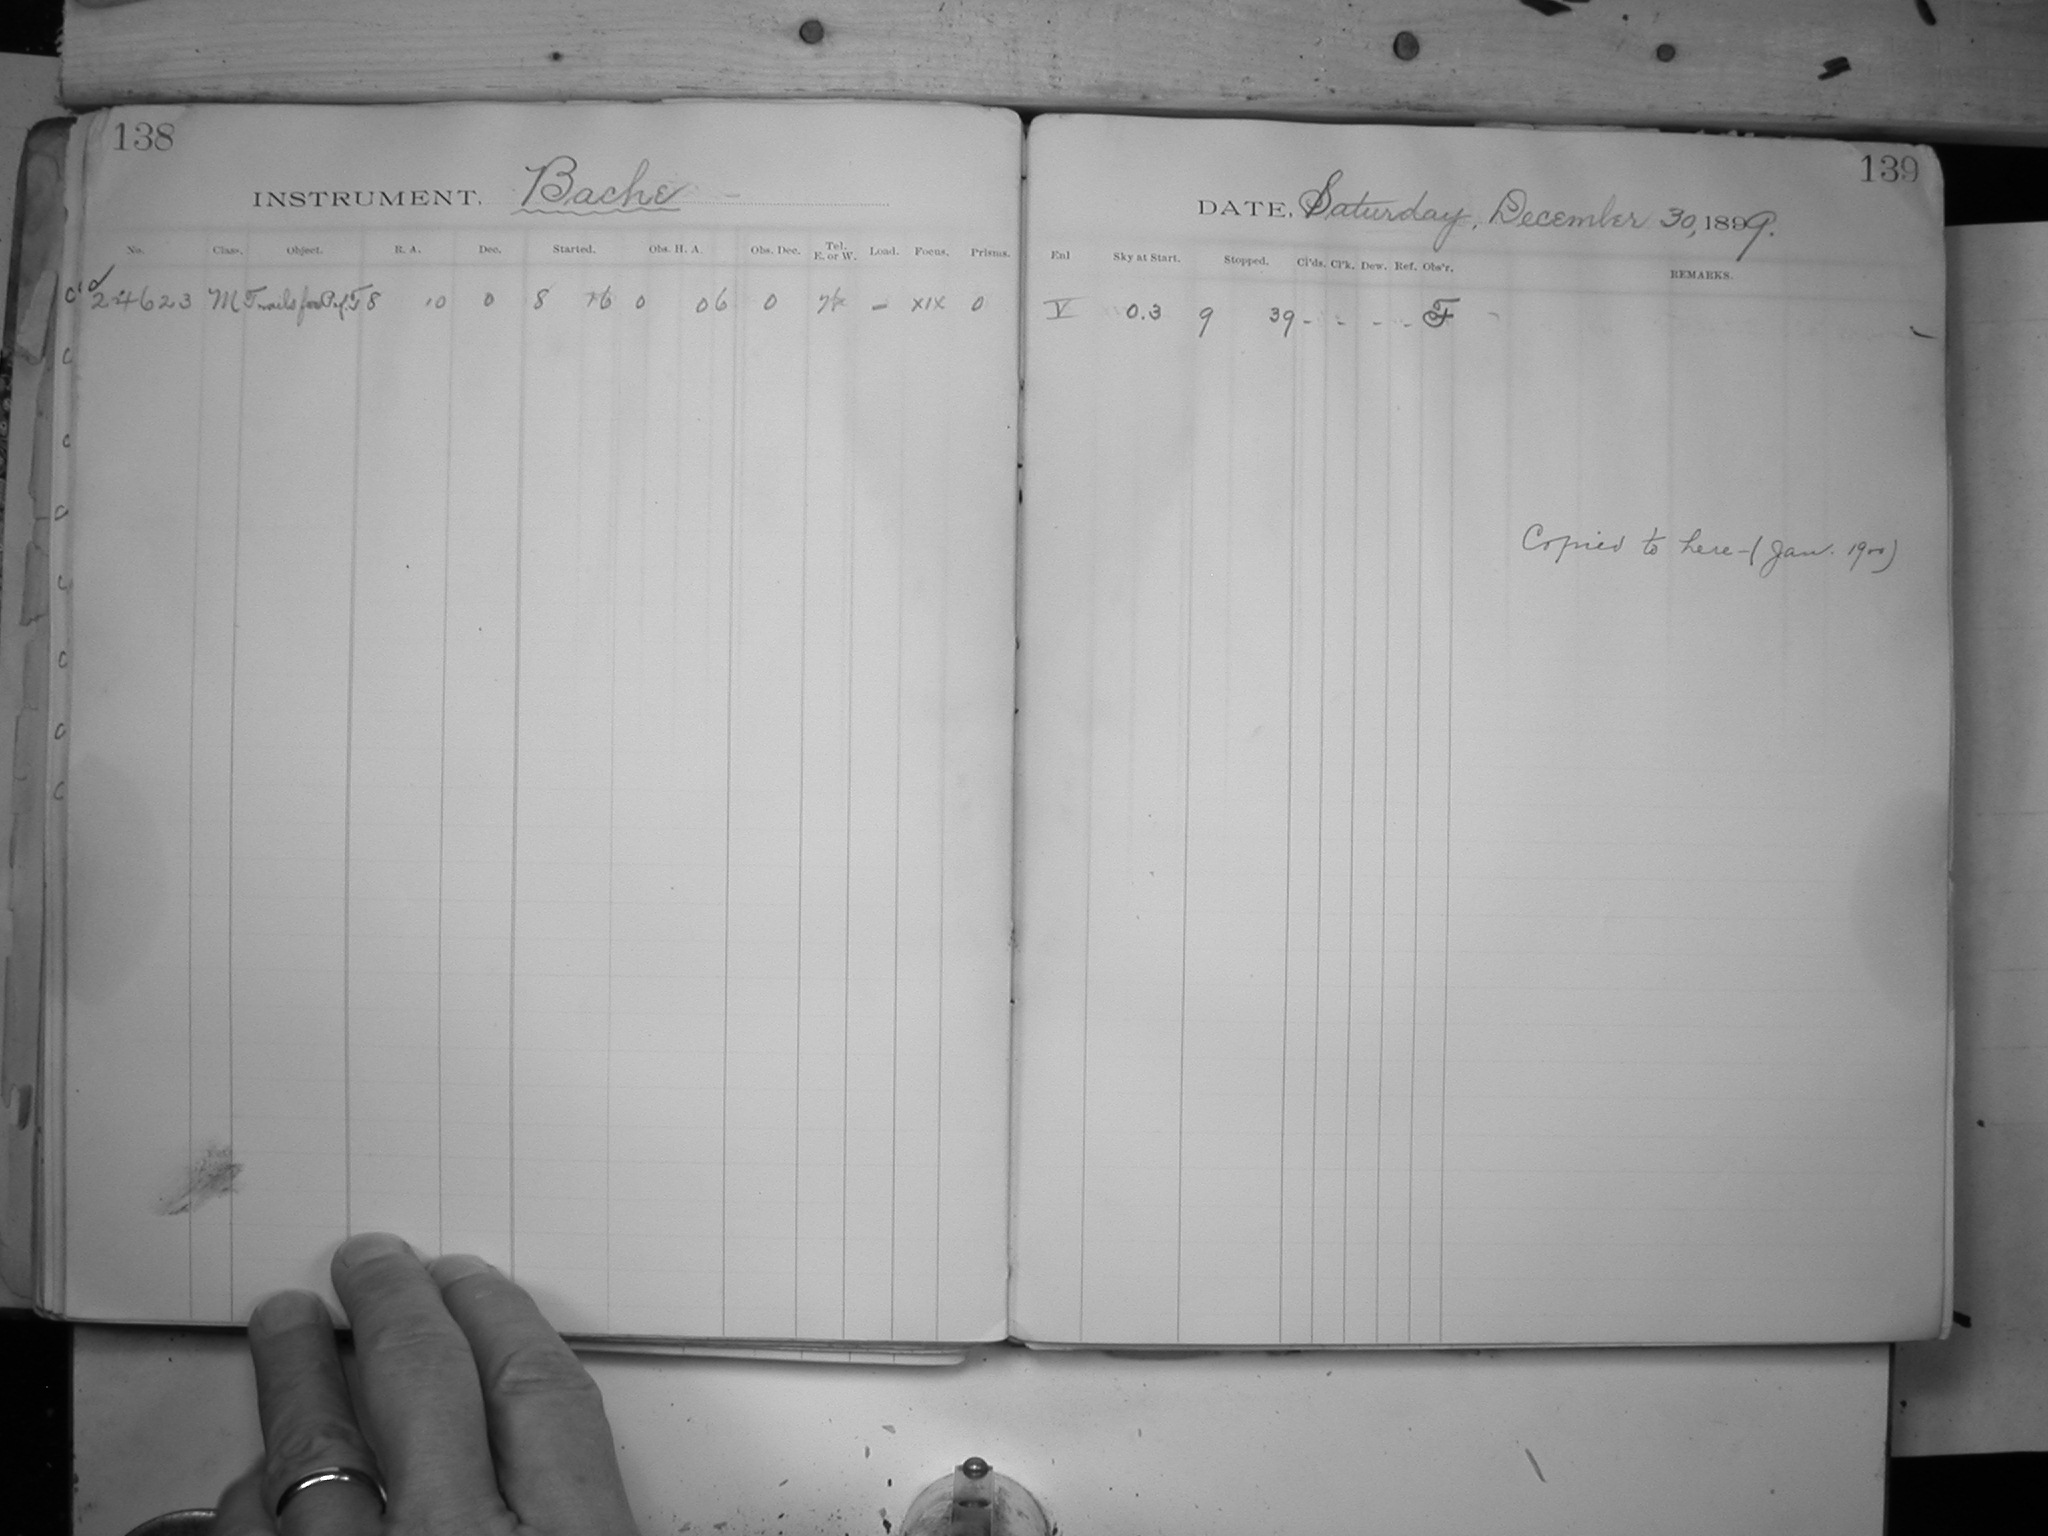 138
INSTRUMENT. Bache
No. Class. Object. R. A. Dec. Started. Obs. H. A. Obs. Dec. Tel. E. or W. Load. Focus. Prisms.
24623 M Trails for Prof. 8 10 0 8 16 0 06 0 - XIX 0
139
DATE, Saturday, December 30, 1899.
Enl Sky at Start. Stopped. Cl'ds. Cl'k. Dew. Ref. Obs'r. REMARKS.
V 0.3 9 39 - - - - F
Copied to here - (Jan. 1900)